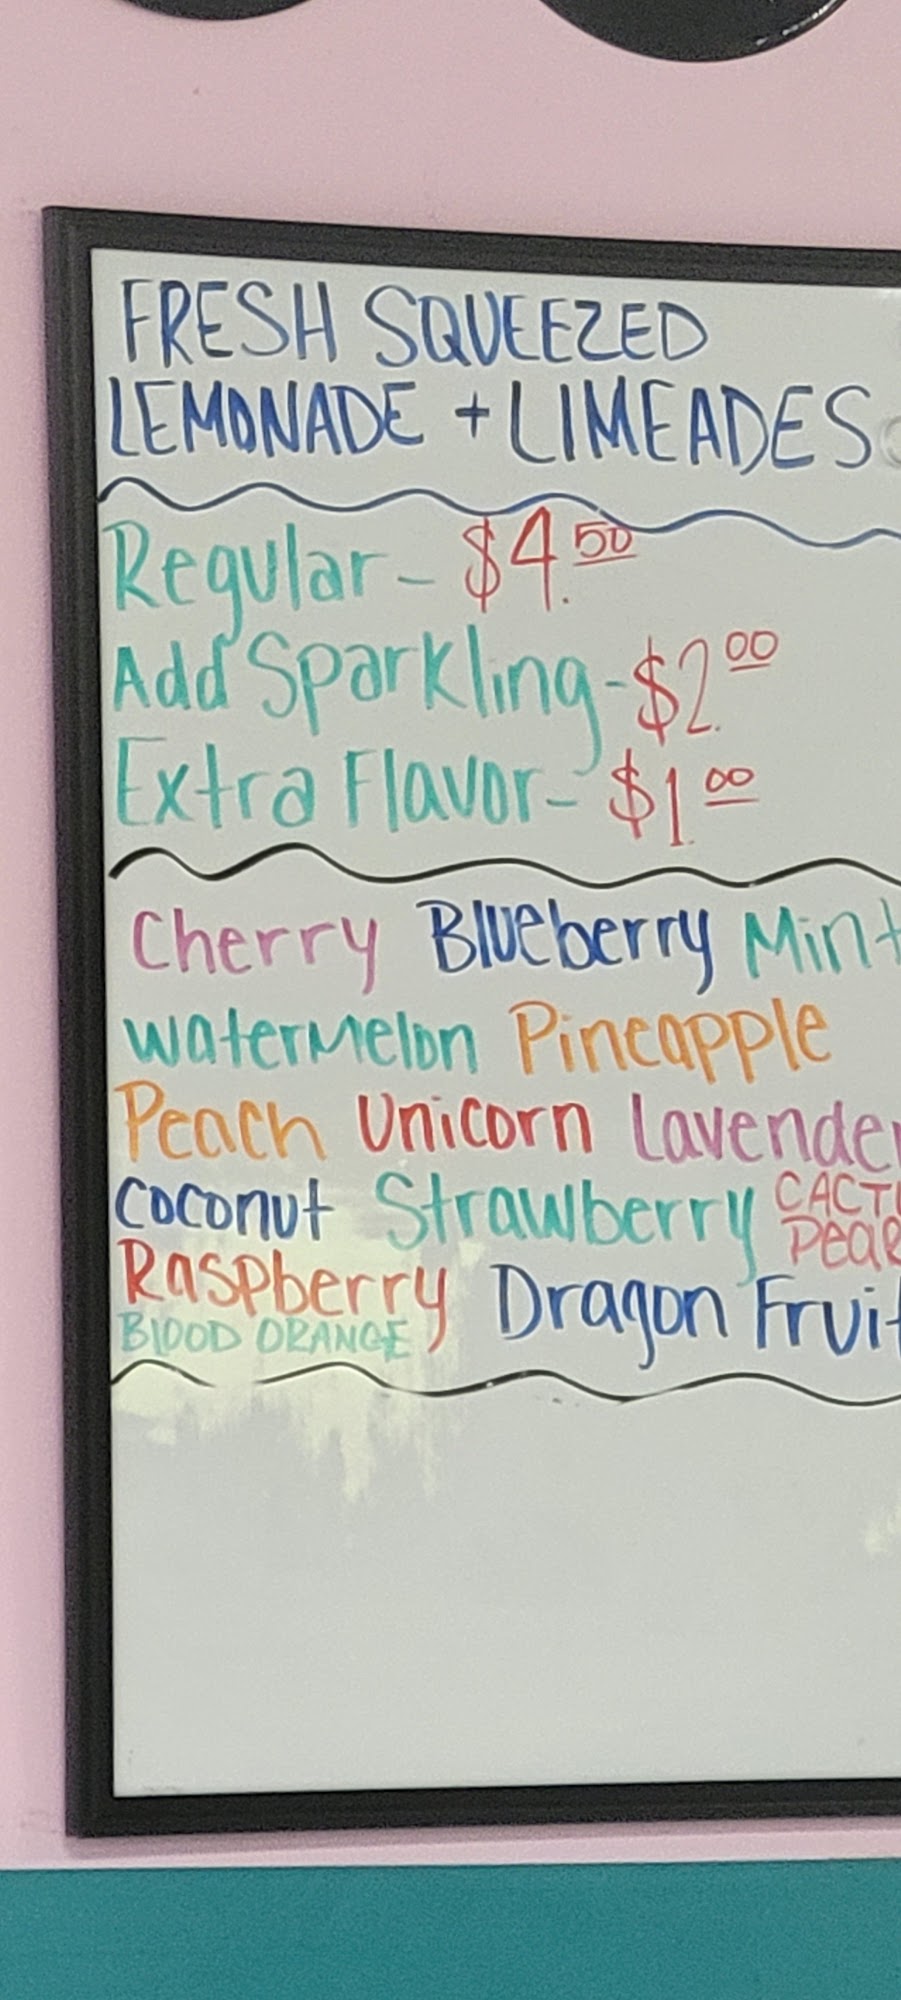 FRESH SQUEEZED
LEMONADE + LIMEADES
Regular - $4.50
Add Sparkling - $2.00
Extra Flavor - $1.00
Cherry Blueberry Mint
Watermelon Pineapple
Peach Unicorn Lavender
Coconut Strawberry CACTU
PEAR
Raspberry Dragon Fruit
BLOOD ORANGE